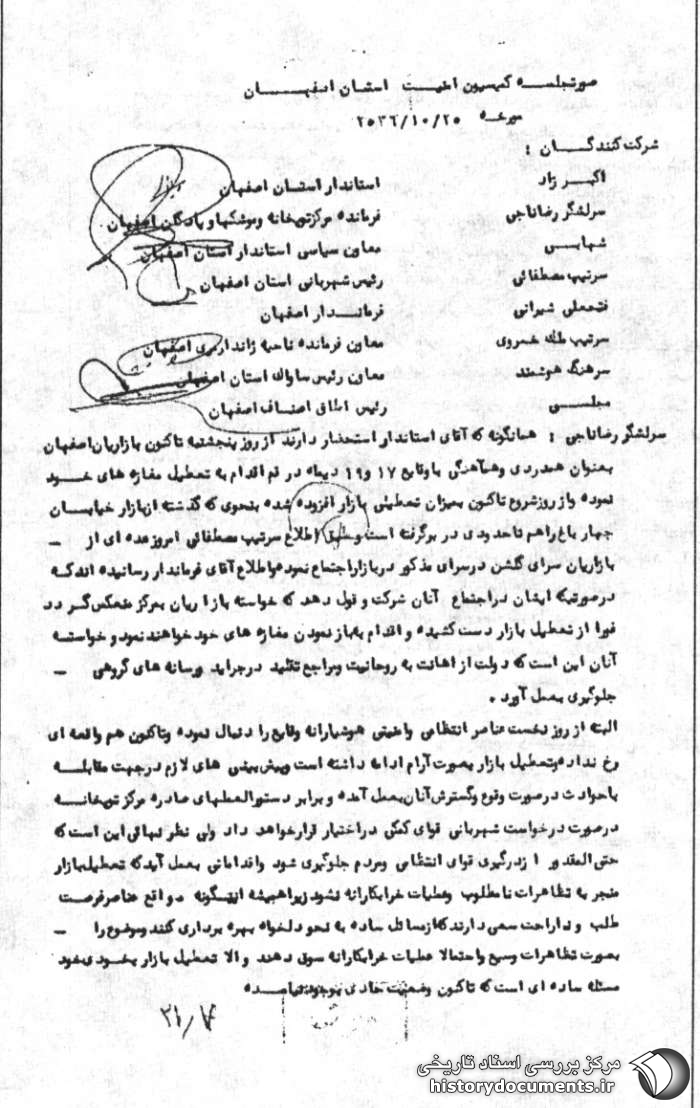 صورتجلسه کمیسیون امنیت استان اصفهان
مورخه ۲۵۳۶/۱۰/۲۵
شرکت کنندگان :
اکبر زاد استاندار استان اصفهان
سرلشگر رضا ناجی فرمانده مرکز توپخانه وموشکها و پادگان اصفهان
شهابی معاون سیاسی استاندار استان اصفهان
سرتیپ مصطفائی رئیس شهربانی استان اصفهان
فتحعلی شیرانی فرماندار اصفهان
سرتیپ خسروی معاون فرمانده ناحیه ژاندارمری اصفهان
سرهنگ هوشمند معاون رئیس ساواک استان اصفهان
مجلسی رئیس اطاق اصناف اصفهان
سرلشگر رضا ناجی : همانگونه که آقای استاندار استحضار دارند از روز پنجشنبه تاکنون بازاریان اصفهان
بعنوان همدردی وهمآهنگی با وقایع ۱۷ و ۱۹ دیماه در قم اقدام به تعطیل مغازه های خود
نموده واز روز شروع تاکنون بمیزان تعطیلی بازار افزوده شده بنحوی که گذشته از بازار خیابان
چهار باغ راهم تاحدودی در برگرفته است وطبق اطلاع سرتیپ مصطفائی امروز عده ای از
بازاریان سرای گلشن در سرای مذکور در بازار اجتماع نموده واطلاع آقای فرماندار رسانیده اند که
در صورتیکه ایشان در اجتماع آنان شرکت و قول دهد که خواسته بازاریان بمرکز منعکس گردد
فورا از تعطیل بازار دست کشیده و اقدام به باز نمودن مغازه های خود خواهند نمود و خواسته
آنان این است که دولت از اهانت به روحانیت ومراجع تقلید در جراید ورسانه های گروهی
جلوگیری بعمل آورد .
البته از روز نخست عناصر انتظامی وامنیتی هوشیارانه وقایع را دنبال نموده وتاکنون هم واقعه ای
رخ نداده وتعطیل بازار بصورت آرام ادامه داشته است وپیش بینی های لازم در جهت مقابله
باحوادث در صورت وقوع وگسترش آنان بعمل آمده و برابر دستورالعملهای صادره مرکز توپخانه
در صورت درخواست شهربانی قوای کمکی در اختیار قرار خواهد داد ولی نظر نهائی این است که
حتی المقدور از درگیری قوای انتظامی ومردم جلوگیری شود واقداماتی بعمل آید که تعطیل بازار
منجر به تظاهرات نامطلوب وعملیات خرابکارانه نشود زیرا همیشه اینگونه مواقع عناصر فرصت
طلب وناراحت سعی دارند که از مسائل ساده به نحو دلخواه بهره برداری کنند وموضوع را
بصورت تظاهرات وسیع واحتمالا عملیات خرابکارانه سوق دهند والا تعطیل بازار بخودی خود
مسئله ساده ای است که تاکنون وضعیت حادی بوجود نیامده
مرکز بررسی اسناد تاریخی
historydocuments.ir